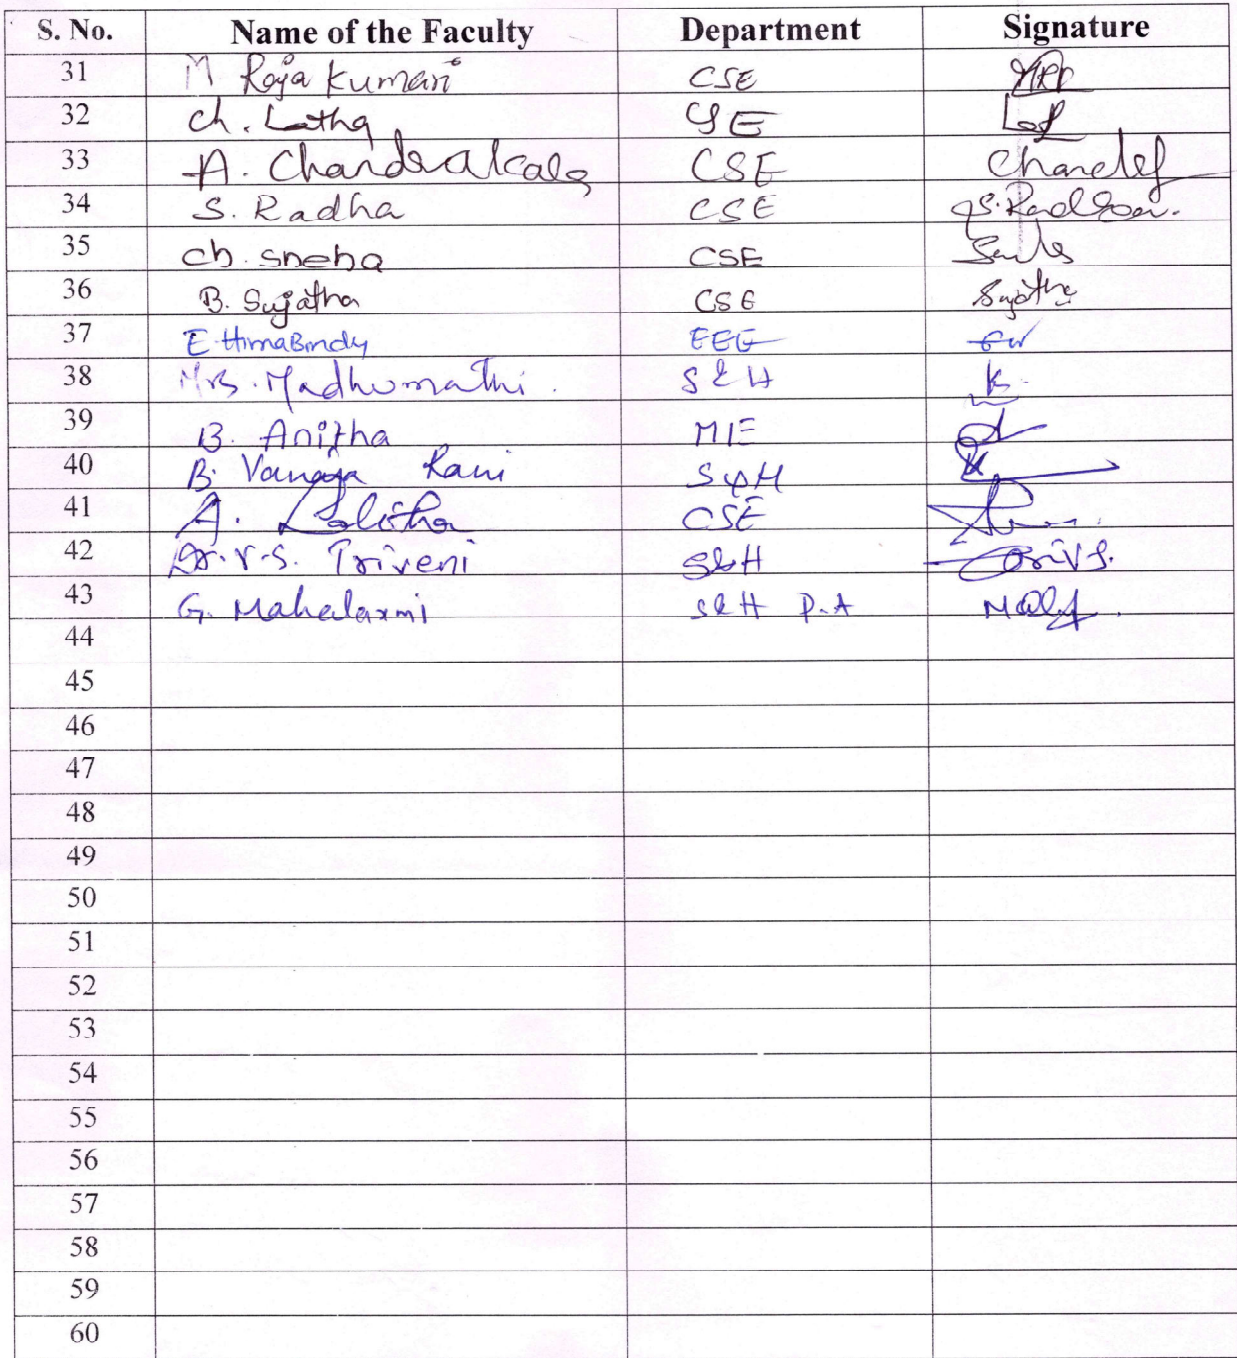 S. No. Name of the Faculty Department Signature
31 M Roja Kumari CSE
32 Ch. Latha CSE
33 A. Chandrakala CSE
34 S. Radha CSE S. Radha.
35 Ch. Sneha CSE
36 B. Sujatha CSE Sujatha
37 E. HimaBindu EEE
38 Mrs. Madhumathi. S & H K.
39 B. Anitha ME
40 B. Vanaja Rani S & H
41 A. Lalitha CSE
42 Dr. V.S. Triveni S&H
43 G. Mahalaxmi S&H P.A
44
45
46
47
48
49
50
51
52
53
54
55
56
57
58
59
60